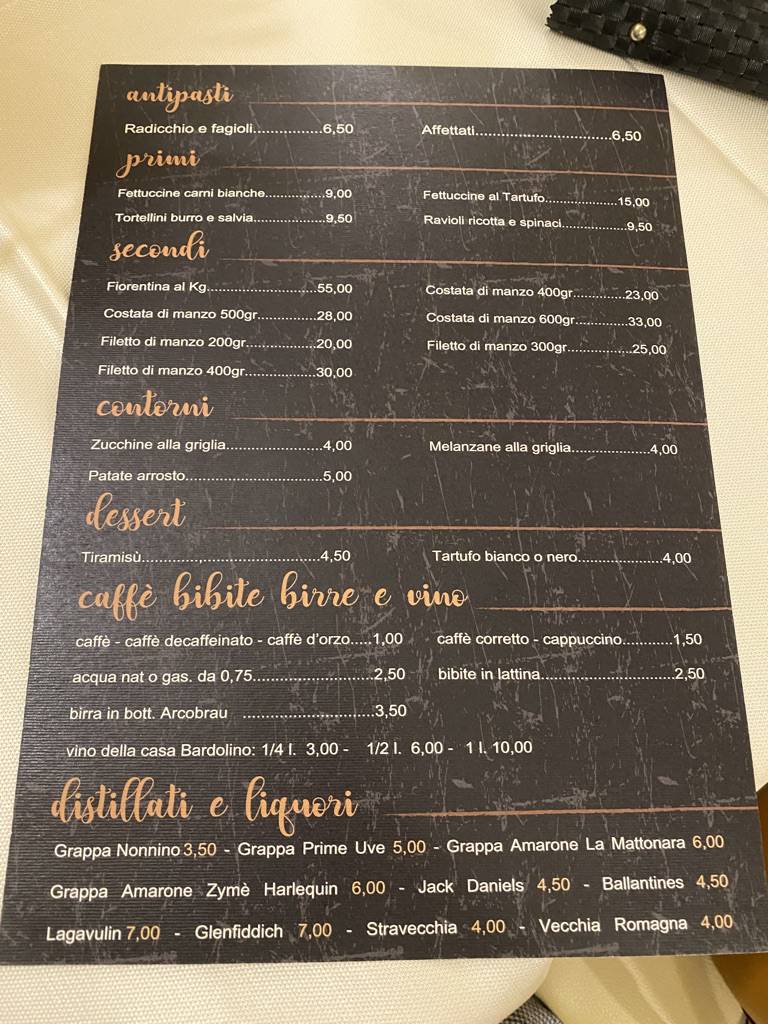 antipasti
Radicchio e fagioli...............6,50 Affettati................................6,50
primi
Fettuccine carni bianche...............9,00 Fettuccine al Tartufo....................15,00
Tortellini burro e salvia..................9,50 Ravioli ricotta e spinaci..................9,50
secondi
Fiorentina al Kg..........................55,00 Costata di manzo 400gr.............23,00
Costata di manzo 500gr..............28,00 Costata di manzo 600gr.............33,00
Filetto di manzo 200gr.................20,00 Filetto di manzo 300gr................25,00
Filetto di manzo 400gr.................30,00
contorni
Zucchine alla griglia.......................4,00 Melanzane alla griglia...................4,00
Patate arrosto.................................5,00
dessert
Tiramisù.........................................4,50 Tartufo bianco o nero...................4,00
caffè bibite birre e vino
caffè - caffè decaffeinato - caffè d'orzo.....1,00 caffè corretto - cappuccino...........1,50
acqua nat o gas. da 0,75.............................2,50 bibite in lattina..............................2,50
birra in bott. Arcobrau ..........................3,50
vino della casa Bardolino: 1/4 l. 3,00 - 1/2 l. 6,00 - 1 l. 10,00
distillati e liquori
Grappa Nonnino 3,50 - Grappa Prime Uve 5,00 - Grappa Amarone La Mattonara 6,00
Grappa Amarone Zymè Harlequin 6,00 - Jack Daniels 4,50 - Ballantines 4,50
Lagavulin 7,00 - Glenfiddich 7,00 - Stravecchia 4,00 - Vecchia Romagna 4,00